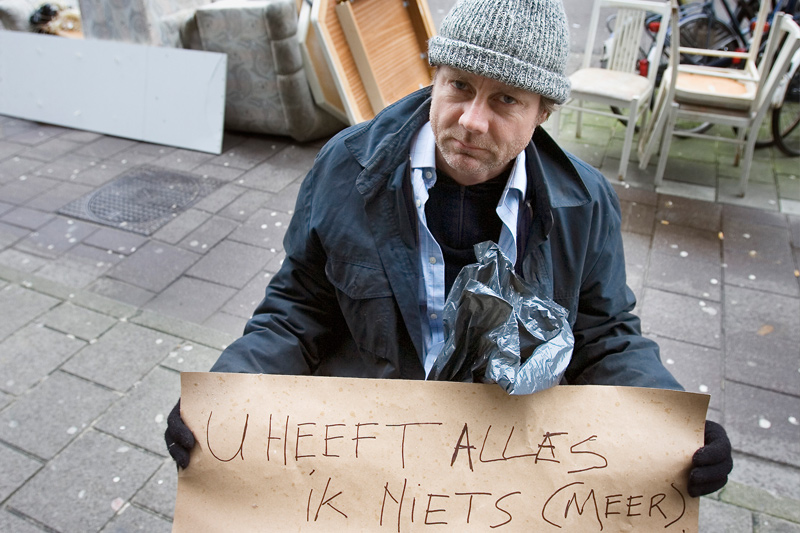 U HEEFT ALLES
iK NiETS (MEER)